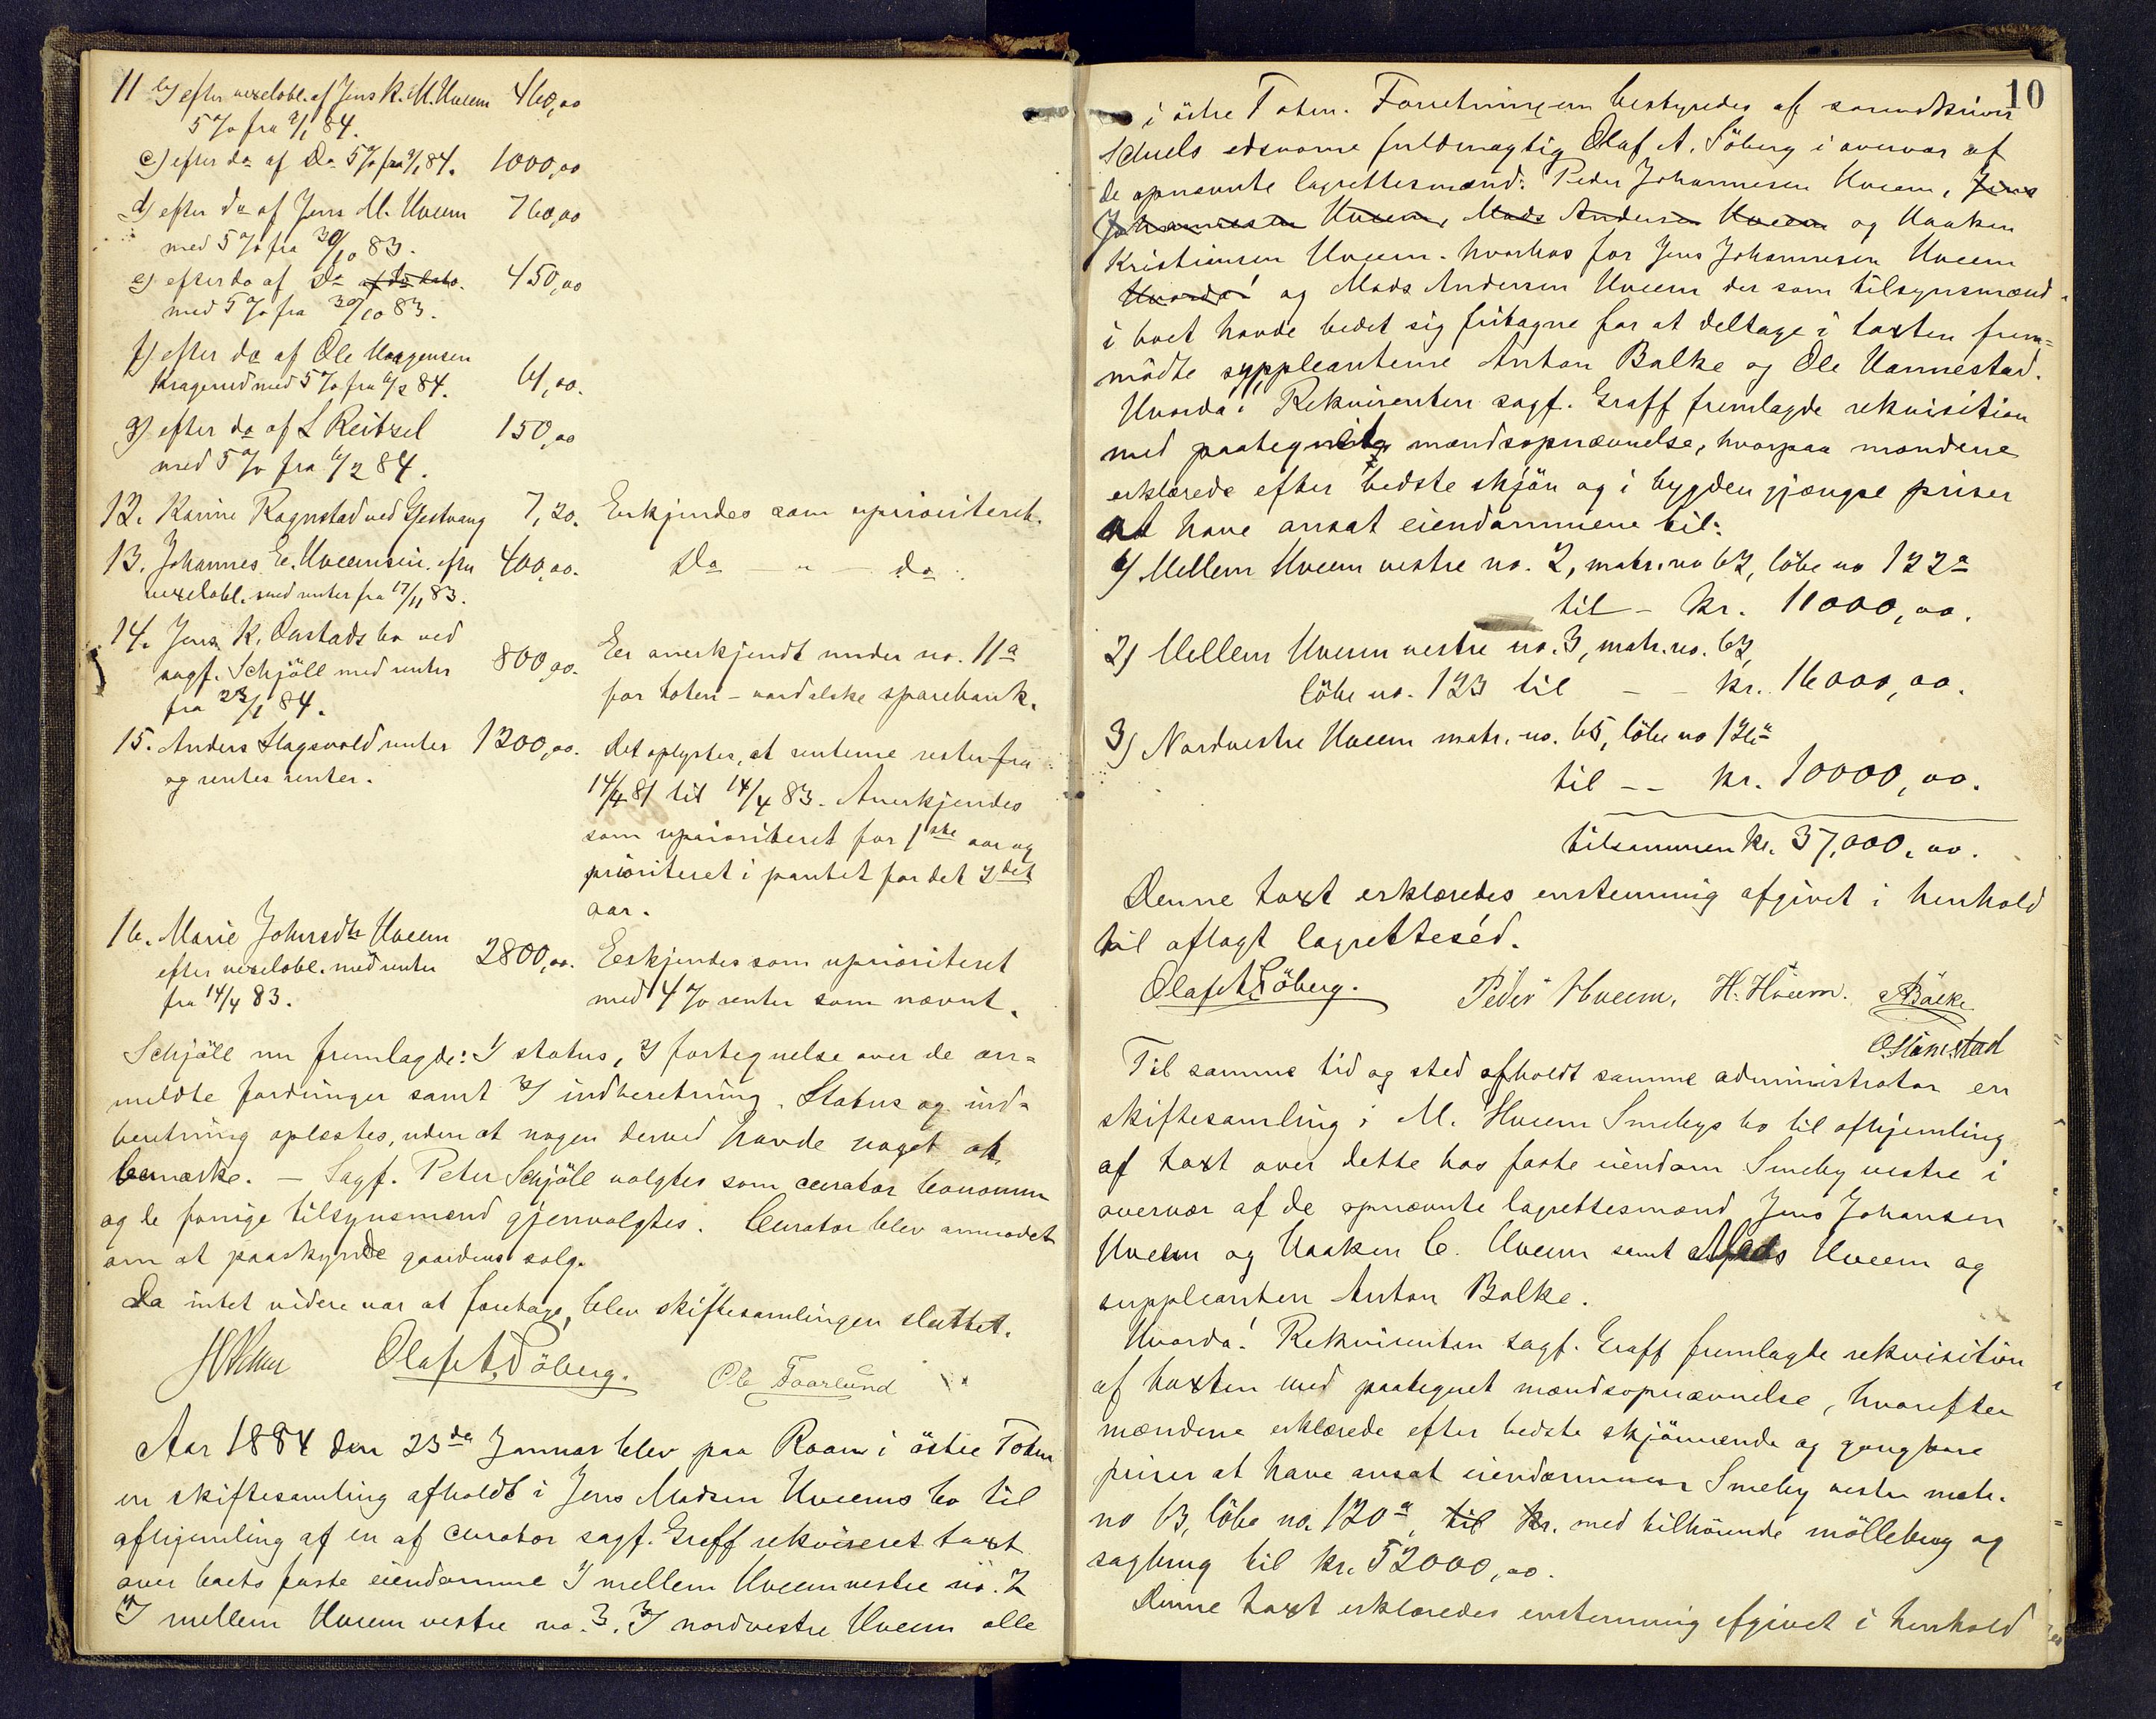 11 b) efter vexelobl. af Jens K. M. Hveem 460,00
5 % fra 9/1 84.
c) efter do af Do 5 % fra 9/1 84. 1000,00
d) efter do af Jens M. Hveem 760,00
med 5 % fra 30/10 83.
e) efter do af Do 450,00
med 5 % fra 30/10 83.
f) efter do af Ole Haagensen
Kragerud med 5 % fra 6/2 84. 61,00.
g) efter do af L Reitzel 150,00
med 5 % fra 6/2 84.
12. Karine Rognstad ved Gjestvang 7,20. Erkjendes som uprioriteret.
13. Johannes E. Hveemsein. efter 400,00. Do — " — do.
vexelobl. med renter fra 17/11 83.
14. Jens K. Onstads bo ved
sagf. Schjöll med renter 800,00. Er anerkjendt under no. 11a
fra 23/1 84. for toten-vardalske sparebank.
15. Anders Slagsvold renter 1200,00. Det oplystes, at renterne rester fra
og rentes renter. 14/4 81 til 14/4 83. Anerkjendes
som uprioriteret for 1ste aar og
prioriteret i pantet for det 2det
aar.
16. Marie Johnsdtr Hveem
efter vexelobl. med renter 2800,00. Erkjendes som uprioriteret
fra 14/4 83. med 4 % renter som nævnt.
Schjöll nu fremlagde: 1) status, 2) fortegnelse over de an=
meldte fordringer samt 3) indberetning. Status og ind=
beretning oplæstes, uden at nogen derved havde noget at
bemærke. — Sagf. Peter Schjöll valgtes som curator bonorum
og de forrige tilsynsmænd gjenvalgtes. Curator blev anmodet
om at paaskynde gaardens salg.
Da intet videre var at foretage, blev skiftesamlingen sluttet.
Olaf A. Söberg. Ole Faarlund
Aar 1884 den 23de Januar blev paa Raan i östre Toten
en skiftesamling afholdt i Jens Madsen Hveems bo til
afhjemling af en af curator sagf. Graff rekvireret taxt
over boets faste eiendomme 1) mellem Hveem vestre no. 2
2) mellem Hveem vestre no. 3. 3) nordvestre Hveem alle
10
i östre Toten. Forretningen bestyredes af sorenskriver
Schuels edsvorne fuldmægtig Olaf A. Söberg i overvær af
de opnævnte lagrettesmænd: Peder Johannesen Hveem, Jens
Johannesen Hveem, Mads Andersen Hveem og Haaken
Kristiansen Hveem. hvorhos for Jens Johannesen Hveem
Hvorda! og Mads Andersen Hveem der som tilsynsmænd
i boet havde bedet sig fritagne for at deltage i taxten frem=
mödte suppleanterne Anton Balke og Ole Hannestad.
Hvorda! Rekvirenten sagf. Graff fremlagde rekvisition
med paategnet mændsopnævnelse, hvorpaa mændene
erklærede efter bedste skjön og i bygden gjængse priser
at have ansat eiendommene til:
1) Mellem Hveem vestre no. 2, matr. no 62, löbe no 122a
til — kr. 11000,00.
2) Mellem Hveem vestre no. 3, matr. no. 62,
löbe no. 123 til — — kr. 16000,00.
3) Nordvestre Hveem matr. no. 65, löbe no 126a
til — — kr. 10000,00.
tilsammen kr. 37,000,00.
Denne taxt erklæredes enstemmig afgivet i henhold
til aflagt lagretteséd.
Olaf A. Söberg. Peder Hveem, H. Hveem. ABalke
Til samme tid og sted afholdt samme administrator en
skiftesamling i M. Hveem Smebys bo til afhjemling
af taxt over dette bos faste eiendom Smeby vestre i
overvær af de opnævnte lagrettesmænd Jens Johansen
Hveem og Haaken C. Hveem samt Mads Hveem og
suppleanten Anton Balke.
Hvorda! Rekvirenten sagf. Graff fremlagde rekvisition
af taxten med paategnet mændsopnævnelse, hvorefter
mændene erklærede efter bedste skjönnende og gangbare
priser at have ansat eiendommen Smeby vestre matr.
no 63, löbe no. 120a, til kr. med tilhörende möllebrug og
sagbrug til kr. 52000,00.
Denne taxt erklæredes enstemmig afgivet i henhold